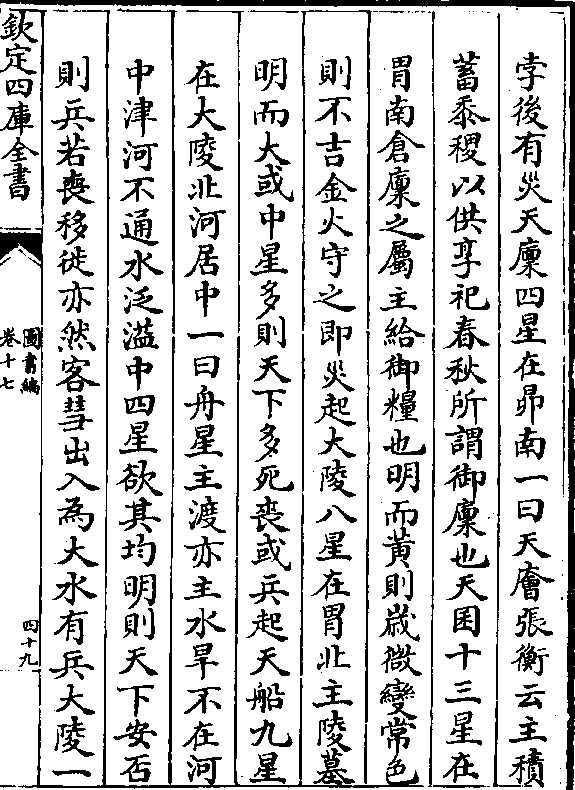 孛後有災天廩四星在昴南一曰天廥張衡云主積
蓄黍稷以供享祀春秋所謂御廩也天囷十三星在
胃南倉廩之屬主給御糧也明而黃則嵗微變常色
則不吉金火守之即災起大陵八星在胃北主陵墓
明而大或中星多則天下多死喪或兵起天船九星
在大陵北河居中一曰舟星主渡亦主水旱不在河
中津河不通水泛溢中四星欲其均明則天下安否
則兵若喪移徙亦然客彗出入為大水有兵大陵一
欽定四庫全書
圖書編
卷十七
四十九